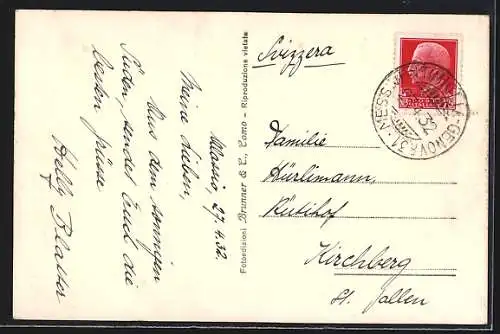 Alassio, 27.4.32.
Meine Lieben,
Aus dem sonnigen
Süden, sendet Euch die
besten Grüsse
Helly Blaser
Fotoedizioni Brunner & C., Como - Riproduzione vietata
Svizzera
Familie
Hürlimann,
Rütihof
Kirchberg
St. Gallen
GENOVA